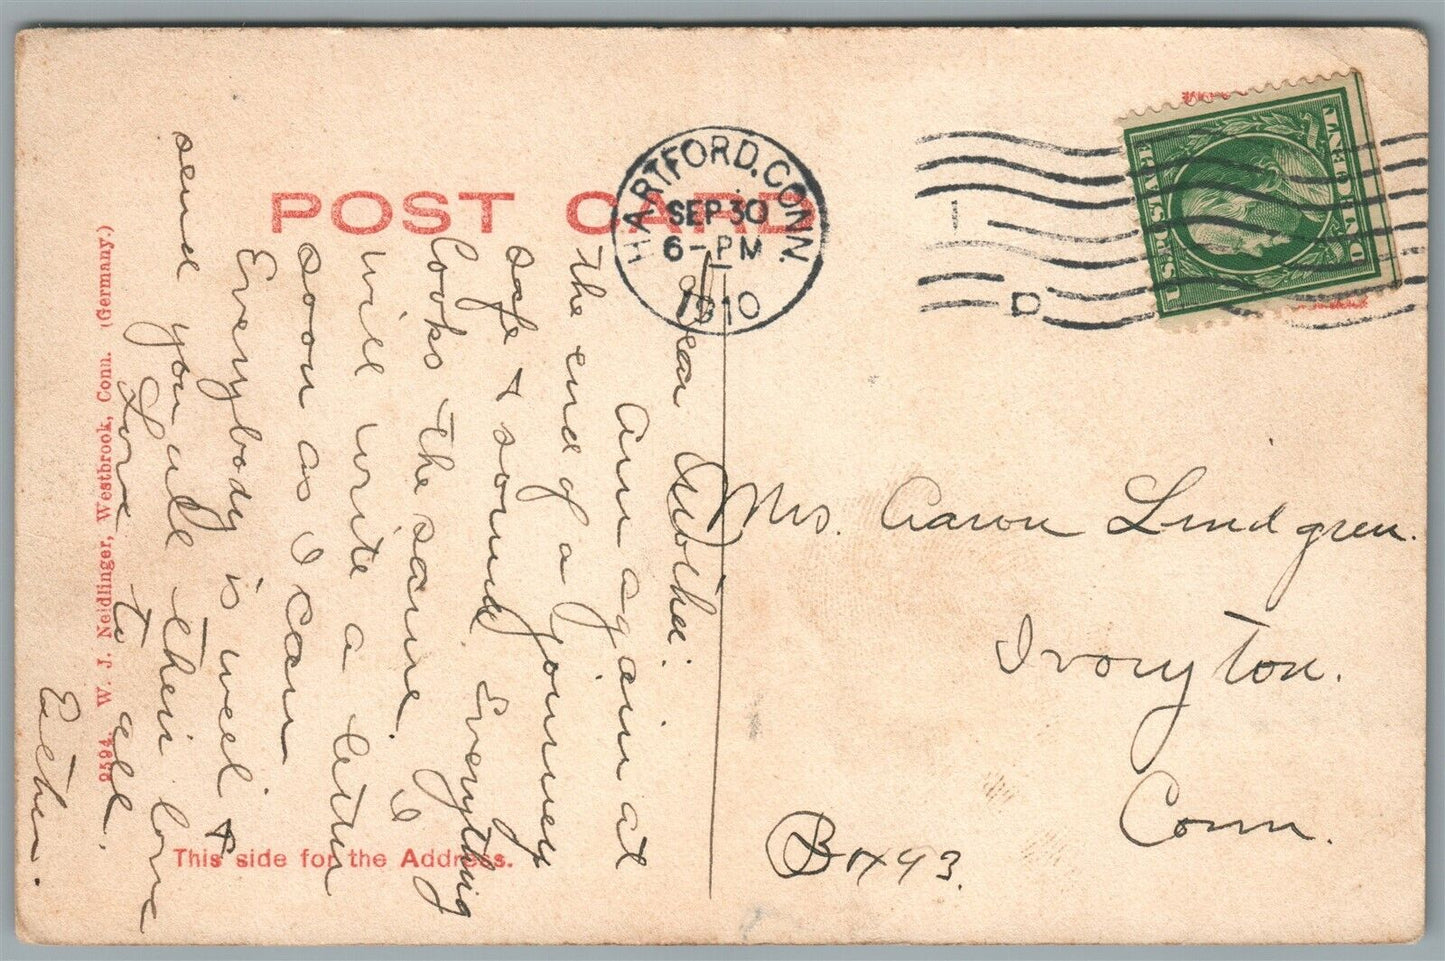 POST CARD
HARTFORD, CONN.
SEP 30
6-PM
1910
D
U.S. POSTAGE
Dear Mother:
Am again at
the end of a journey
safe & sound. Everything
looks the same. I
will write a letter
soon as I can
Everybody is well &
send you all their love
Love to all.
Esther.
Mrs. Aaron Lindgren.
Ivoryton.
Conn.
Box 93.
This side for the Address.
2594. W. J. Neidlinger, Westbrook, Conn. (Germany.)